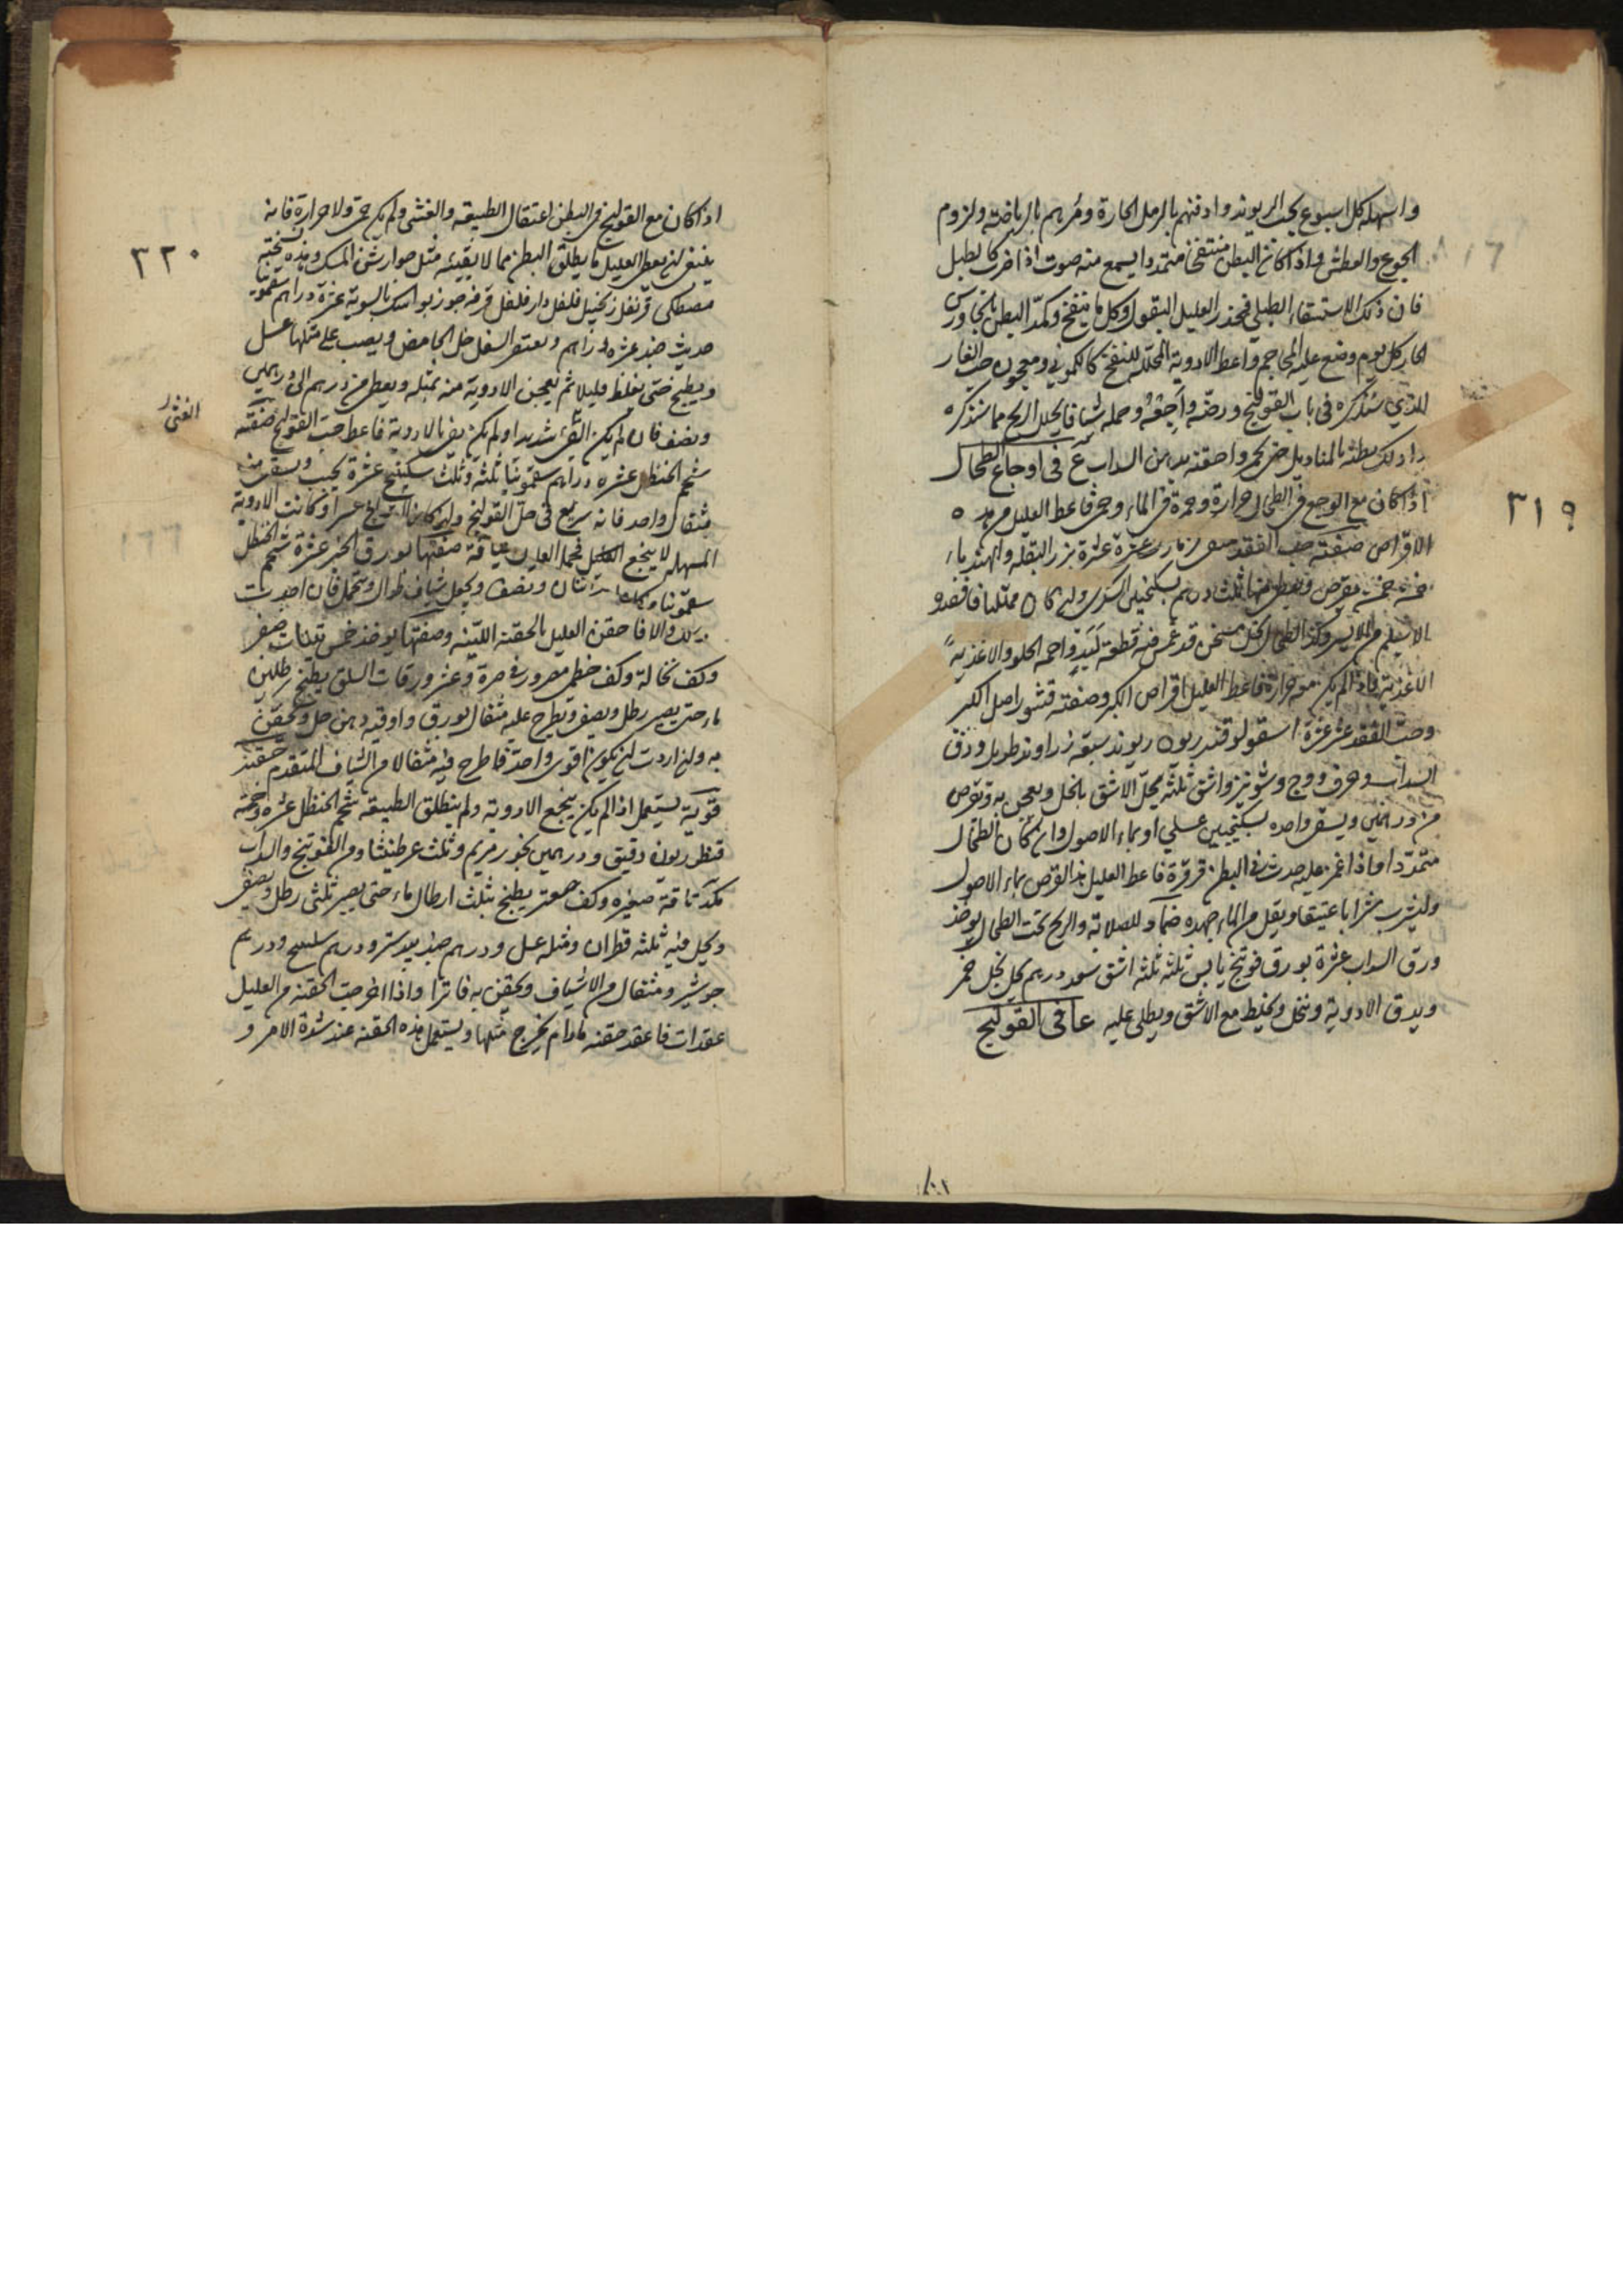 واسهله كل اسبوع بحب الريوند وادفنهم بالرمل الحارة ومرهم بالرياضة ولزوم
الجوع والعطش واذا كان البطن منتفخا متمددا يسمع منه صوت اذا ضرب كالطبل
فان ذلك الاستسقاء الطبلي فحذر العليل البقول وكل ما ينفخ وكمد البطن بالجاورس
الحار كل يوم وضع عليه المحاجم واعط الادوية المحللة للنفخ كالكموني ومعجون حب الغار
الذي سنذكره في باب القولنج ورضه واجعه وحمله شيافا يحلل الريح مما سنذكره
وادلك بطنه بالمناديل حتى يحمر واحقنه بدهن السداب ع في اوجاع الطحال
٣١٩
اذا كان مع الوجع في الطحال حرارة وحمرة في الماء وحمى فاعط العليل من هذه
الاقراص صفته حب الفقد عشرة عشرة بزر البقلة والهندباء
خمسة خمسة يقرص ويعطى منها ثلث دراهم بسكنجبين السكري وان كان ممتلئا فافصد
الاسيلم من الايسر وكمد الطحال بخل مسخن قد غمس فيه قطعة لبد واحمه الحلو والاغذية
الاغذية فاذا لم يكن معه حرارة فاعط العليل اقراص الكبر وصفته قشور اصل الكبر
وحب الفقد عشرة عشرة اسقولوقندريون ريوند سبعة زراوند طويل وورق
السداب وحرف ووج وشونيز واشق ثلثة يحل الاشق بالخل ويعجن به ويقرص
من درهمين ويسقى واحدة بسكنجبين عسلي او بماء الاصول وان كان الطحال
متمددا واذا غمز عليه حدث في البطن قرقرة فاعط العليل هذا القرص بماء الاصول
وليشرب شرابا عتيقا ويقل من الماء جهده ضماد للصلابة والريح تحت الطحال يوخذ
ورق السداب عشرة بورق فوتنج يابس ثلثة ثلثة اشق سعد درهم يحل بخل خمر
ويدق الادوية وينخل ويخلط مع الاشق ويطلى عليه عا في القولنج
اذا كان مع القولنج في البطن اعتقال الطبيعة والغثى ولم يكن حمى ولا حرارة فانه
٣٢٠
ينبغي ان يعطى العليل ما يطلق البطن مما لا يقيئه مثل جوارشن المسك وهذه نسخته
مصطكى قرنفل زنجبيل فلفل دارفلفل قرفة جوزبوا سك بالسوية عشرة دراهم سقمونيا
حديث جيد عشرة دراهم ويعتصر السفرجل الحامض ويصب على مثلها عسل
ويطبخ حتى يغلظ قليلا ثم يعجن الادوية منه بمثله ويعطى من درهم الى درهمين
ونصف فان لم يكن القئ شديدا ولم يكن يفي بالادوية فاعط حب القولنج صفته
شحم الحنظل عشرة دراهم سقمونيا ثلثة وثلث سكبينج عشرة يحبب ويسقى منه
مثقال واحد فانه سريع في حل القولنج وان كان عسرا وكانت الادوية
المسهلة لا ينجع فحمل العليل شيافة صفتها بورق الخبز عشرة شحم الحنظل
سقمونيا اثنان ونصف ويجعل شياف طوال ويتحمل فان اجدت
ذلك والا فاحقن العليل بالحقنة اللينة وصفتها يوخذ خمس تينات صفر
وكف نخالة وكف خطمى مصرور في صرة وعشر ورقات السلق يطبخ برطلين
ماء حتى يصير رطل ونصف ويطرح عليه مثقال بورق واوقية دهن حل ويحقن
به وان اردت ان يكون اقوى واحد فاطرح فيه مثقالا من الشياف المتقدم حقنة
قوية يستعمل اذا لم يكن ينجع الادوية ولم ينطلق الطبيعة شحم الحنظل عشرة وخمسة
قنطريون دقيق ودرهمين بخور مريم وثلث عرطنيثا ومن الفوتنج والسداب
مكد تاقة صغيرة وكف صعتر يطبخ بثلث ارطال ماء حتى يصير ثلثى رطل ويصفى
ويحل فيه ثلثه قطران ومثله عسل ودرهم جندبيدستر ودرهم سكبينج ودرهم
جوشير ومثقال من الاشياف ويحقن به فاترا واذا خرجت الحقنة من العليل
عقدات فاعقد حقنه مادام يخرج مثلها ويستعمل هذه الحقنة عند شدة الامر و